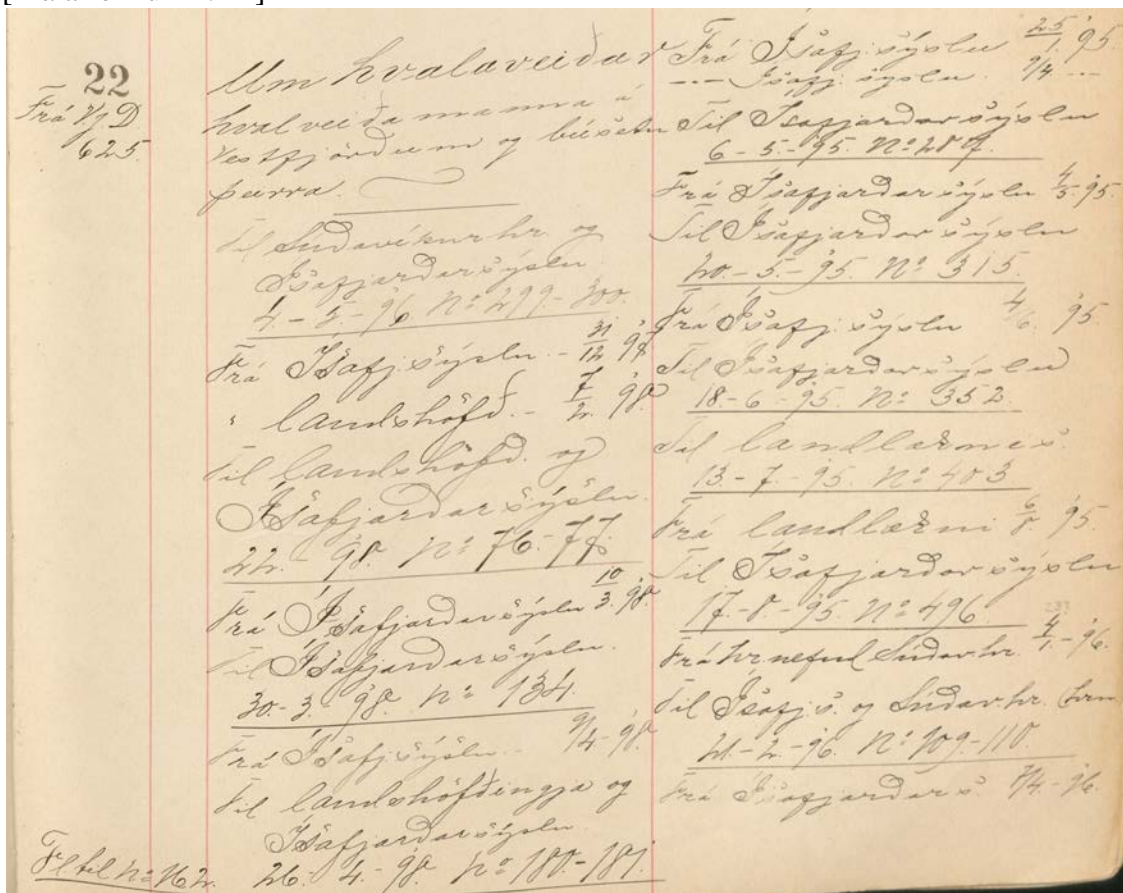 22
Frá Vj D.
625.
Um hvalaveiðar
hvalveiðamanna á
Vestfjörðum og búsetu
þeirra.
Til Súðavíkurhr. og
Ísafjarðarsýslu
4. - 5. - 96. No 299 - 300.
Frá Ísafj. sýslu. - 31/12 97
" landshöfð. - 7/2. 98.
Til landshöfð. og
Ísafjarðarsýslu.
22. - 98. No 76. - 77.
Frá Ísafjarðarsýslu 10/3. 98.
Til Ísafjarðarsýslu.
30. - 3. 98. No 134.
Frá Ísafj. sýslu. - 9/4 - 98.
Til landshöfðingja og
Ísafjarðarsýslu.
26. 4. - 98. No 180. - 181.
Fl til No 162.
Frá Ísafj. sýslu 25/1. 95.
--- Ísafj. sýslu. 9/4 ---
Til Ísafjarðarsýslu
6 - 5. - 95. No 287.
Frá Ísafjarðarsýslu 4/5. 95.
Til Ísafjarðarsýslu
20. - 5. - 95. No 315.
Frá Ísafj. sýslu 4/6. 95.
Til Ísafjarðarsýslu
18. - 6 - 95. No 352.
Til landlæknis.
13. - 7. - 95. No 403.
Frá landlækni 6/8. 95.
Til Ísafjarðarsýslu
17. - 8. - 95. No 496
Frá hrnefnd Súðavhr. 4/1. - 96.
Til Ísafj. s. og Súðavhr.
21. - 2. - 96. No 109 - 110.
Frá Ísafjarðars. 7/4 - 96.